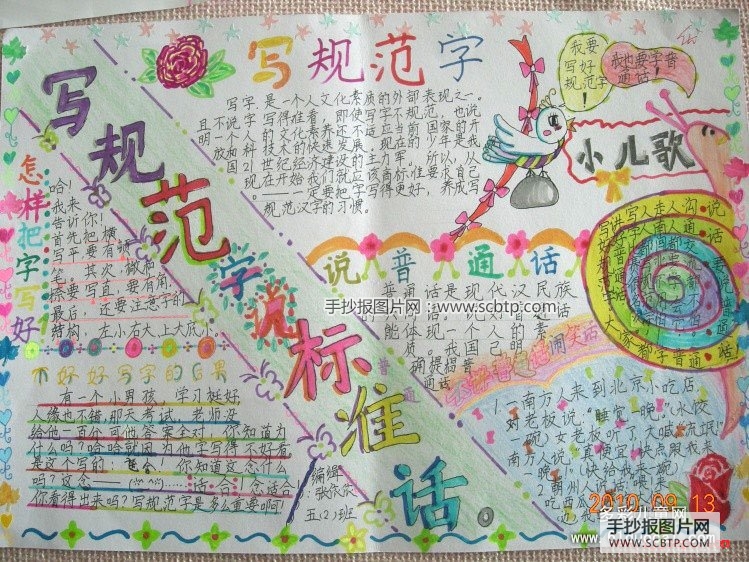 写规范字
写字,是一个人文化素质的外部表现之一。
且不说字写得难看,即使写字不规范,也说
明一个人的文化素养还不适应当前国家的开
放和科技术的快速发展。现在的少年是我
国21世纪经济建设的主力军。所以,从
现在开始我们就应该商标准要求自己。
——一定要把字写得更好,养成写
规范汉字的习惯。
我要
写好
规范字
我也要学普
通话!
小儿歌
写规范字说标准话
怎样把字写好
哈!
我来
告诉你!
首先把横
写平要有顿
笔。其次,撇和
捺要写直,要有角,
最后,还要注意字的
结构,左小右大上大底小。
说普通话
普通话是现代汉民族
能体现一个人的素
质。我国已明
确提倡普
通话
大家都学普通话
不好好写字的后果
有一个小男孩,学习挺好
人缘也不错,那天考试,老师没
给他一百分可他答案全对,你知道为
什么吗?哈哈就因为他字写得不好看,
是这个写的:你知道这念什么
吗?这念——……话合!念适合!
你看得出来吗?写规范字是多么重要啊!
编缉:
张欣欣
五(2)班
闹笑话
1.一南方人来到北京小吃店
对老板说:“睡宫一晚。”(水饺
一碗)女老板听了,大喊“流氓”
南方人说:“真便宜,快点跟我来
一晚”。(快给我来一碗)
2.潮州人说话“喂来
吃西瓜
2010 09 13
手抄报图片网:www.scbtp.com
多彩儿童网
手抄报图片网
WWW.SCBTP.COM